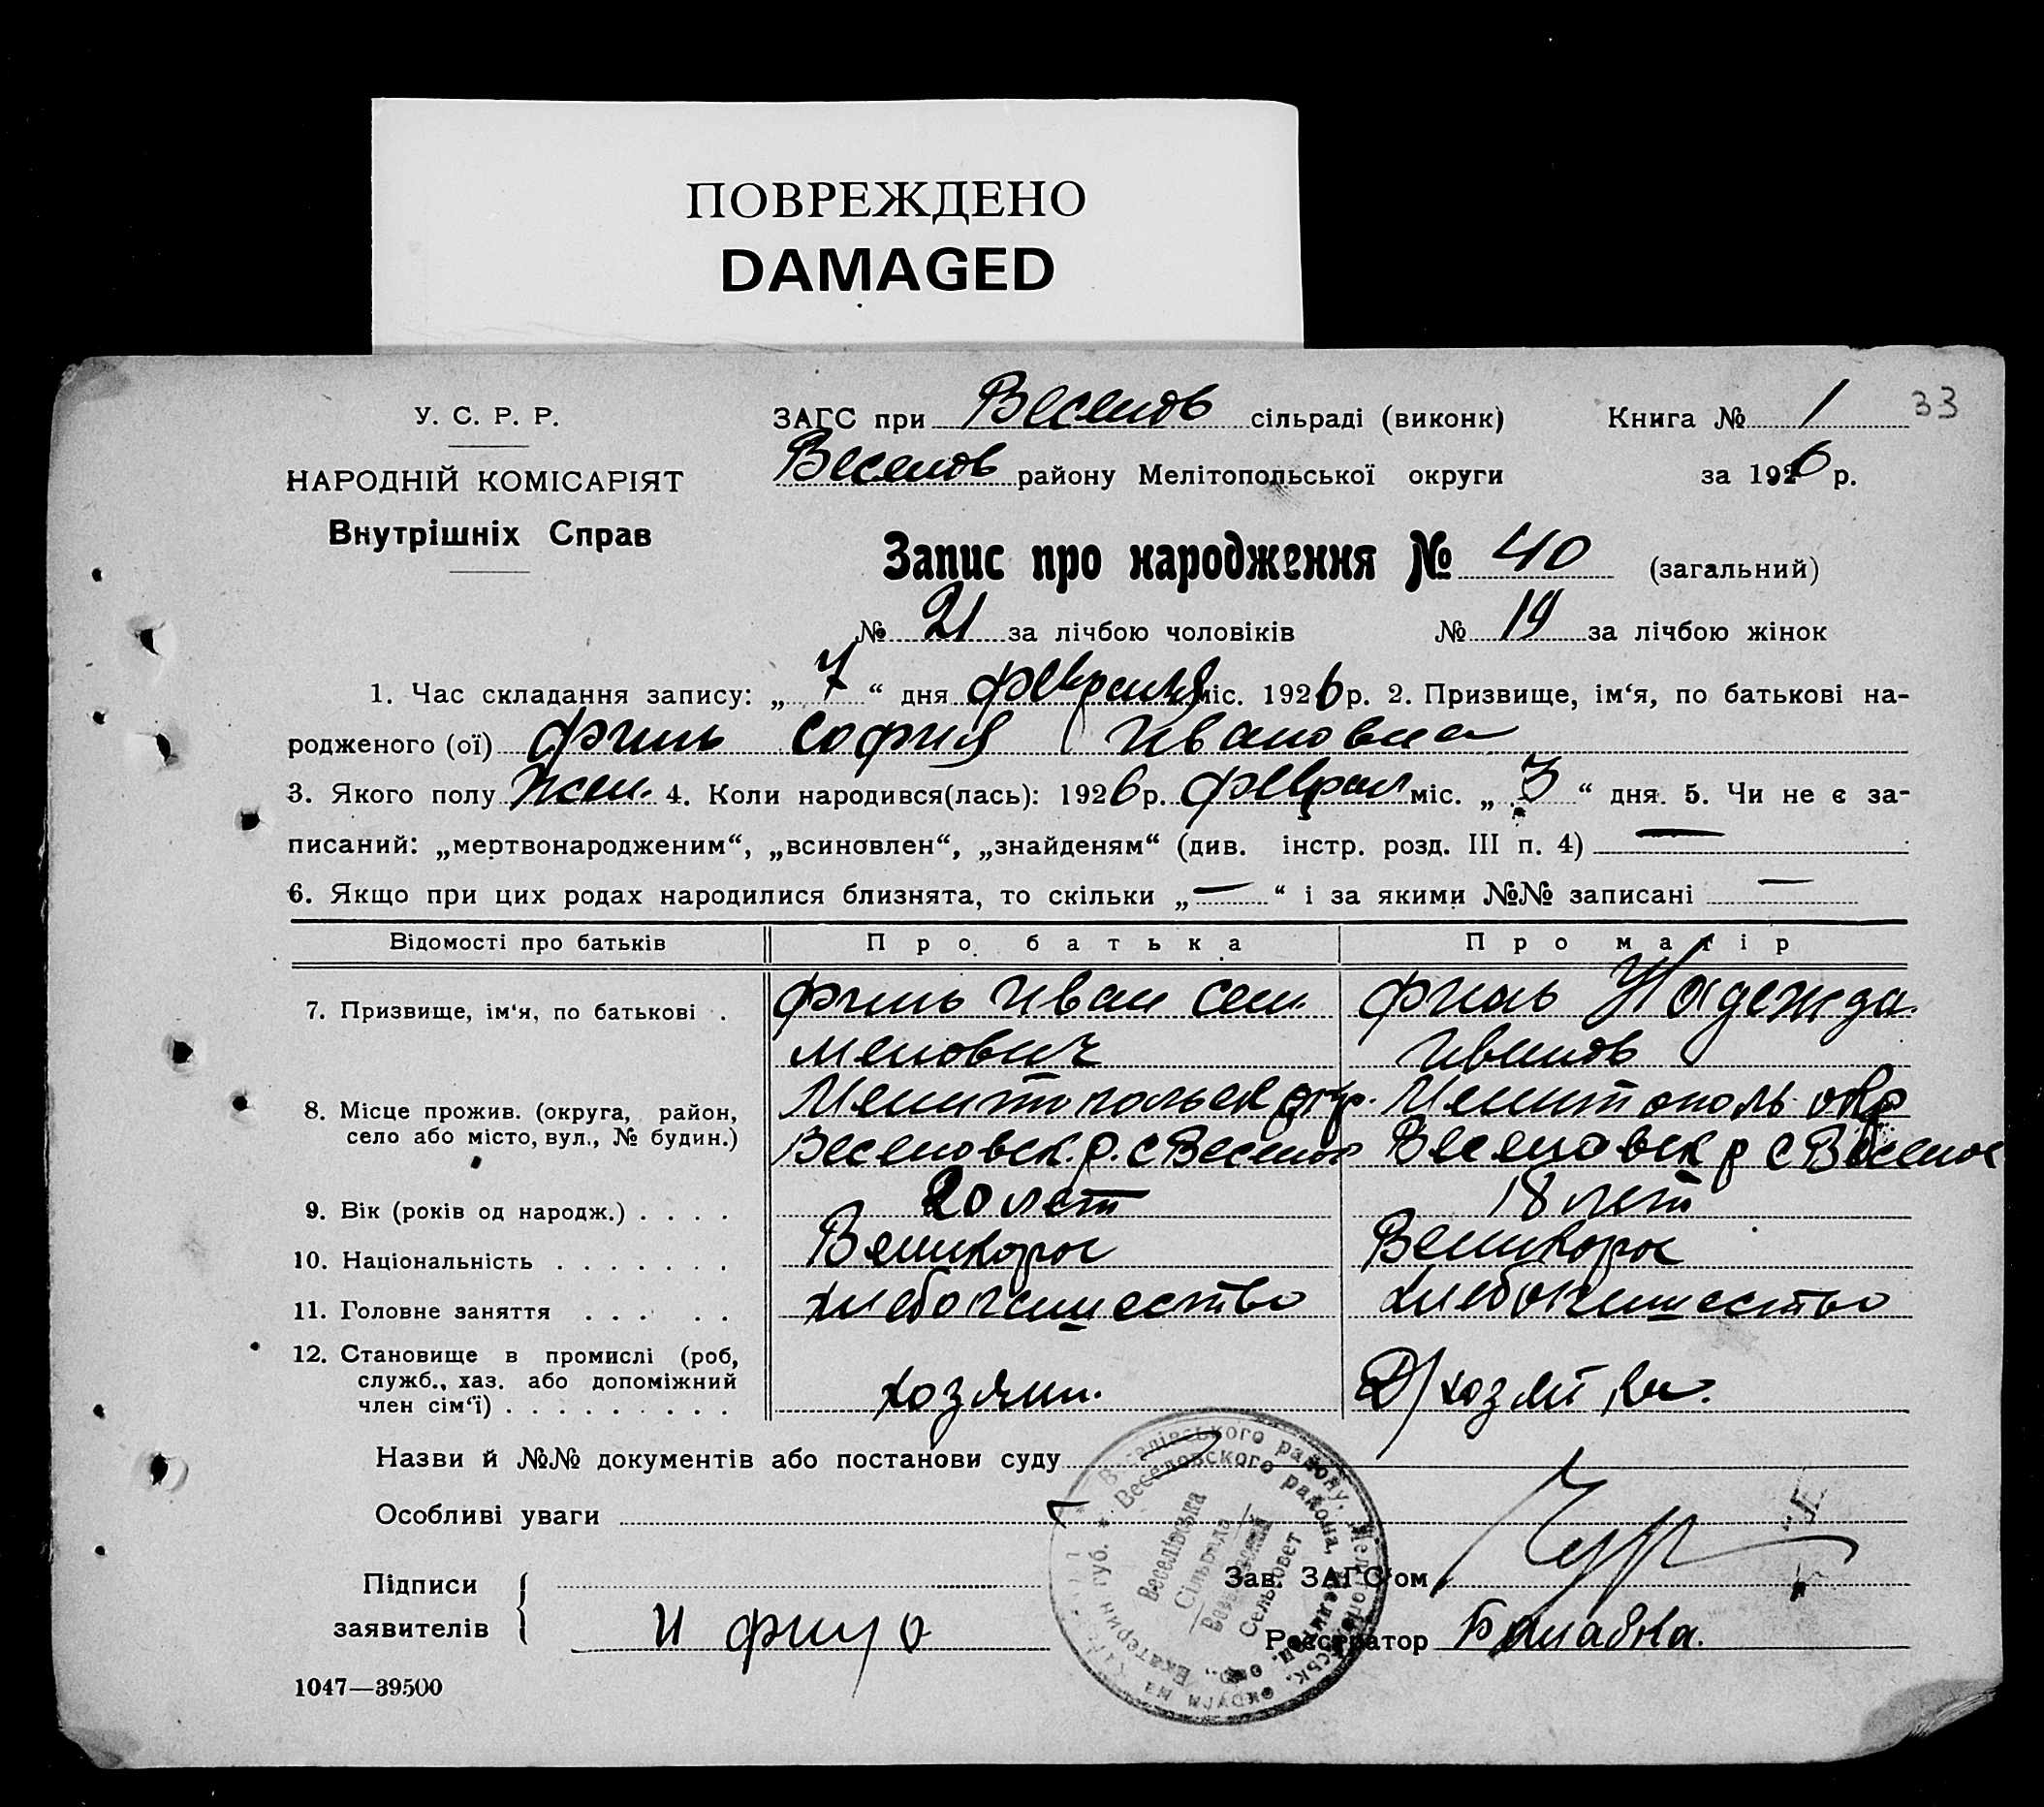 ПОВРЕЖДЕНО
DAMAGED
У. С. Р. Р.
НАРОДНІЙ КОМІСАРІЯТ
Внутрішніх Справ
ЗАГС при Веселов сільраді (виконк) Книга № 1 33
Веселов району Мелітопольської округи за 1926 р.
Запис про народження № 40 (загальний)
№ 21 за лічбою чоловіків № 19 за лічбою жінок
1. Час складання запису: „ 7 “ дня февраля міс. 1926 р. 2. Призвище, ім‘я, по батькові на-
родженого (ої) Филь София Ивановна
3. Якого полу жен. 4. Коли народився(лась): 1926 р. феврал міс. „ 3 “ дня. 5. Чи не є за-
писаний: „мертвонародженим“, „всиновлен“, „знайденям“ (див. інстр. розд. III п. 4) —
6. Якщо при цих родах народилися близнята, то скільки „ — “ і за якими №№ записані —
Відомості про батьків Про батька Про матір
7. Призвище, ім‘я, по батькові . Филь Иван Сем Филь Надежда
менович Иванов
8. Місце прожив. (округа, район, Мелитопольск окр. Мелитополь окр
село або місто, вул., № будин.) Веселовск. р. с Веселое Веселовск р с Веселое
9. Вік (років од народж.) . . . . 20 лет 18 лет
10. Національність . . . . . . . Великорос Великорос
11. Головне заняття . . . . . хлебопашество хлебопашество
12. Становище в промислі (роб,
служб., хаз. або допоміжний хозяин. Д/хозяйка.
член сім‘ї) . . . . . . . . .
Назви й №№ документів або постанови суду
Особливі уваги
Підписи
заявителів
И филь
Зав. ЗАГС‘ом
Реєстратор Балабка.
Веселівського району, Мелітопільськ. округи на
Веселовского района, Мелитоп. окр., Екатерин губ.
Веселівська
Сільрада
Веселовский
Сельсовет
1047—39500